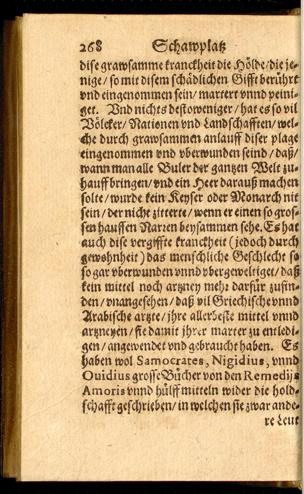 268 Schawplatz
dise grawsamme kranckheit die Hölde/die je-
nige/so mit disem schädlichen Gifft berührt
vnd eingenommen sein/martert vnnd peini-
get. Vnd nichts destoweniger/hat es so vil
Völcker/Nationen vnd Landschafften/wel-
che durch grawsammen anlauff diser plage
eingenommen vnd vberwunden seind/daß/
wann man alle Buler der gantzen Welt zu-
hauff bringen/vnd ein Heer darauß machen
solte/wurde kein Keyser oder Monarch nit
sein/der nicht zitterte/wenn er einen so gros-
sen hauffen Narren beysammen sehe. Es hat
auch dise vergiffte kranckheit (jedoch durch
gewohnheit) das menschliche Geschlecht so
so gar vberwunden vnnd vbergeweltiget/daß
kein mittel noch artzney mehr darfür zufin-
den/vnangesehen/daß vil Griechische vnnd
Arabische artzte/jhre allerbeste mittel vnnd
artzneyen/sie damit jhrer marter zu entledi-
gen/angewendet vnd gebraucht haben. Es
haben wol Samocrates, Nigidius, vnnd
Ouidius grosse Bücher von den Remedijs
Amoris vnnd hülff mitteln wider die hold-
schafft geschrieben/in welchen sie zwar ande-
re Leut